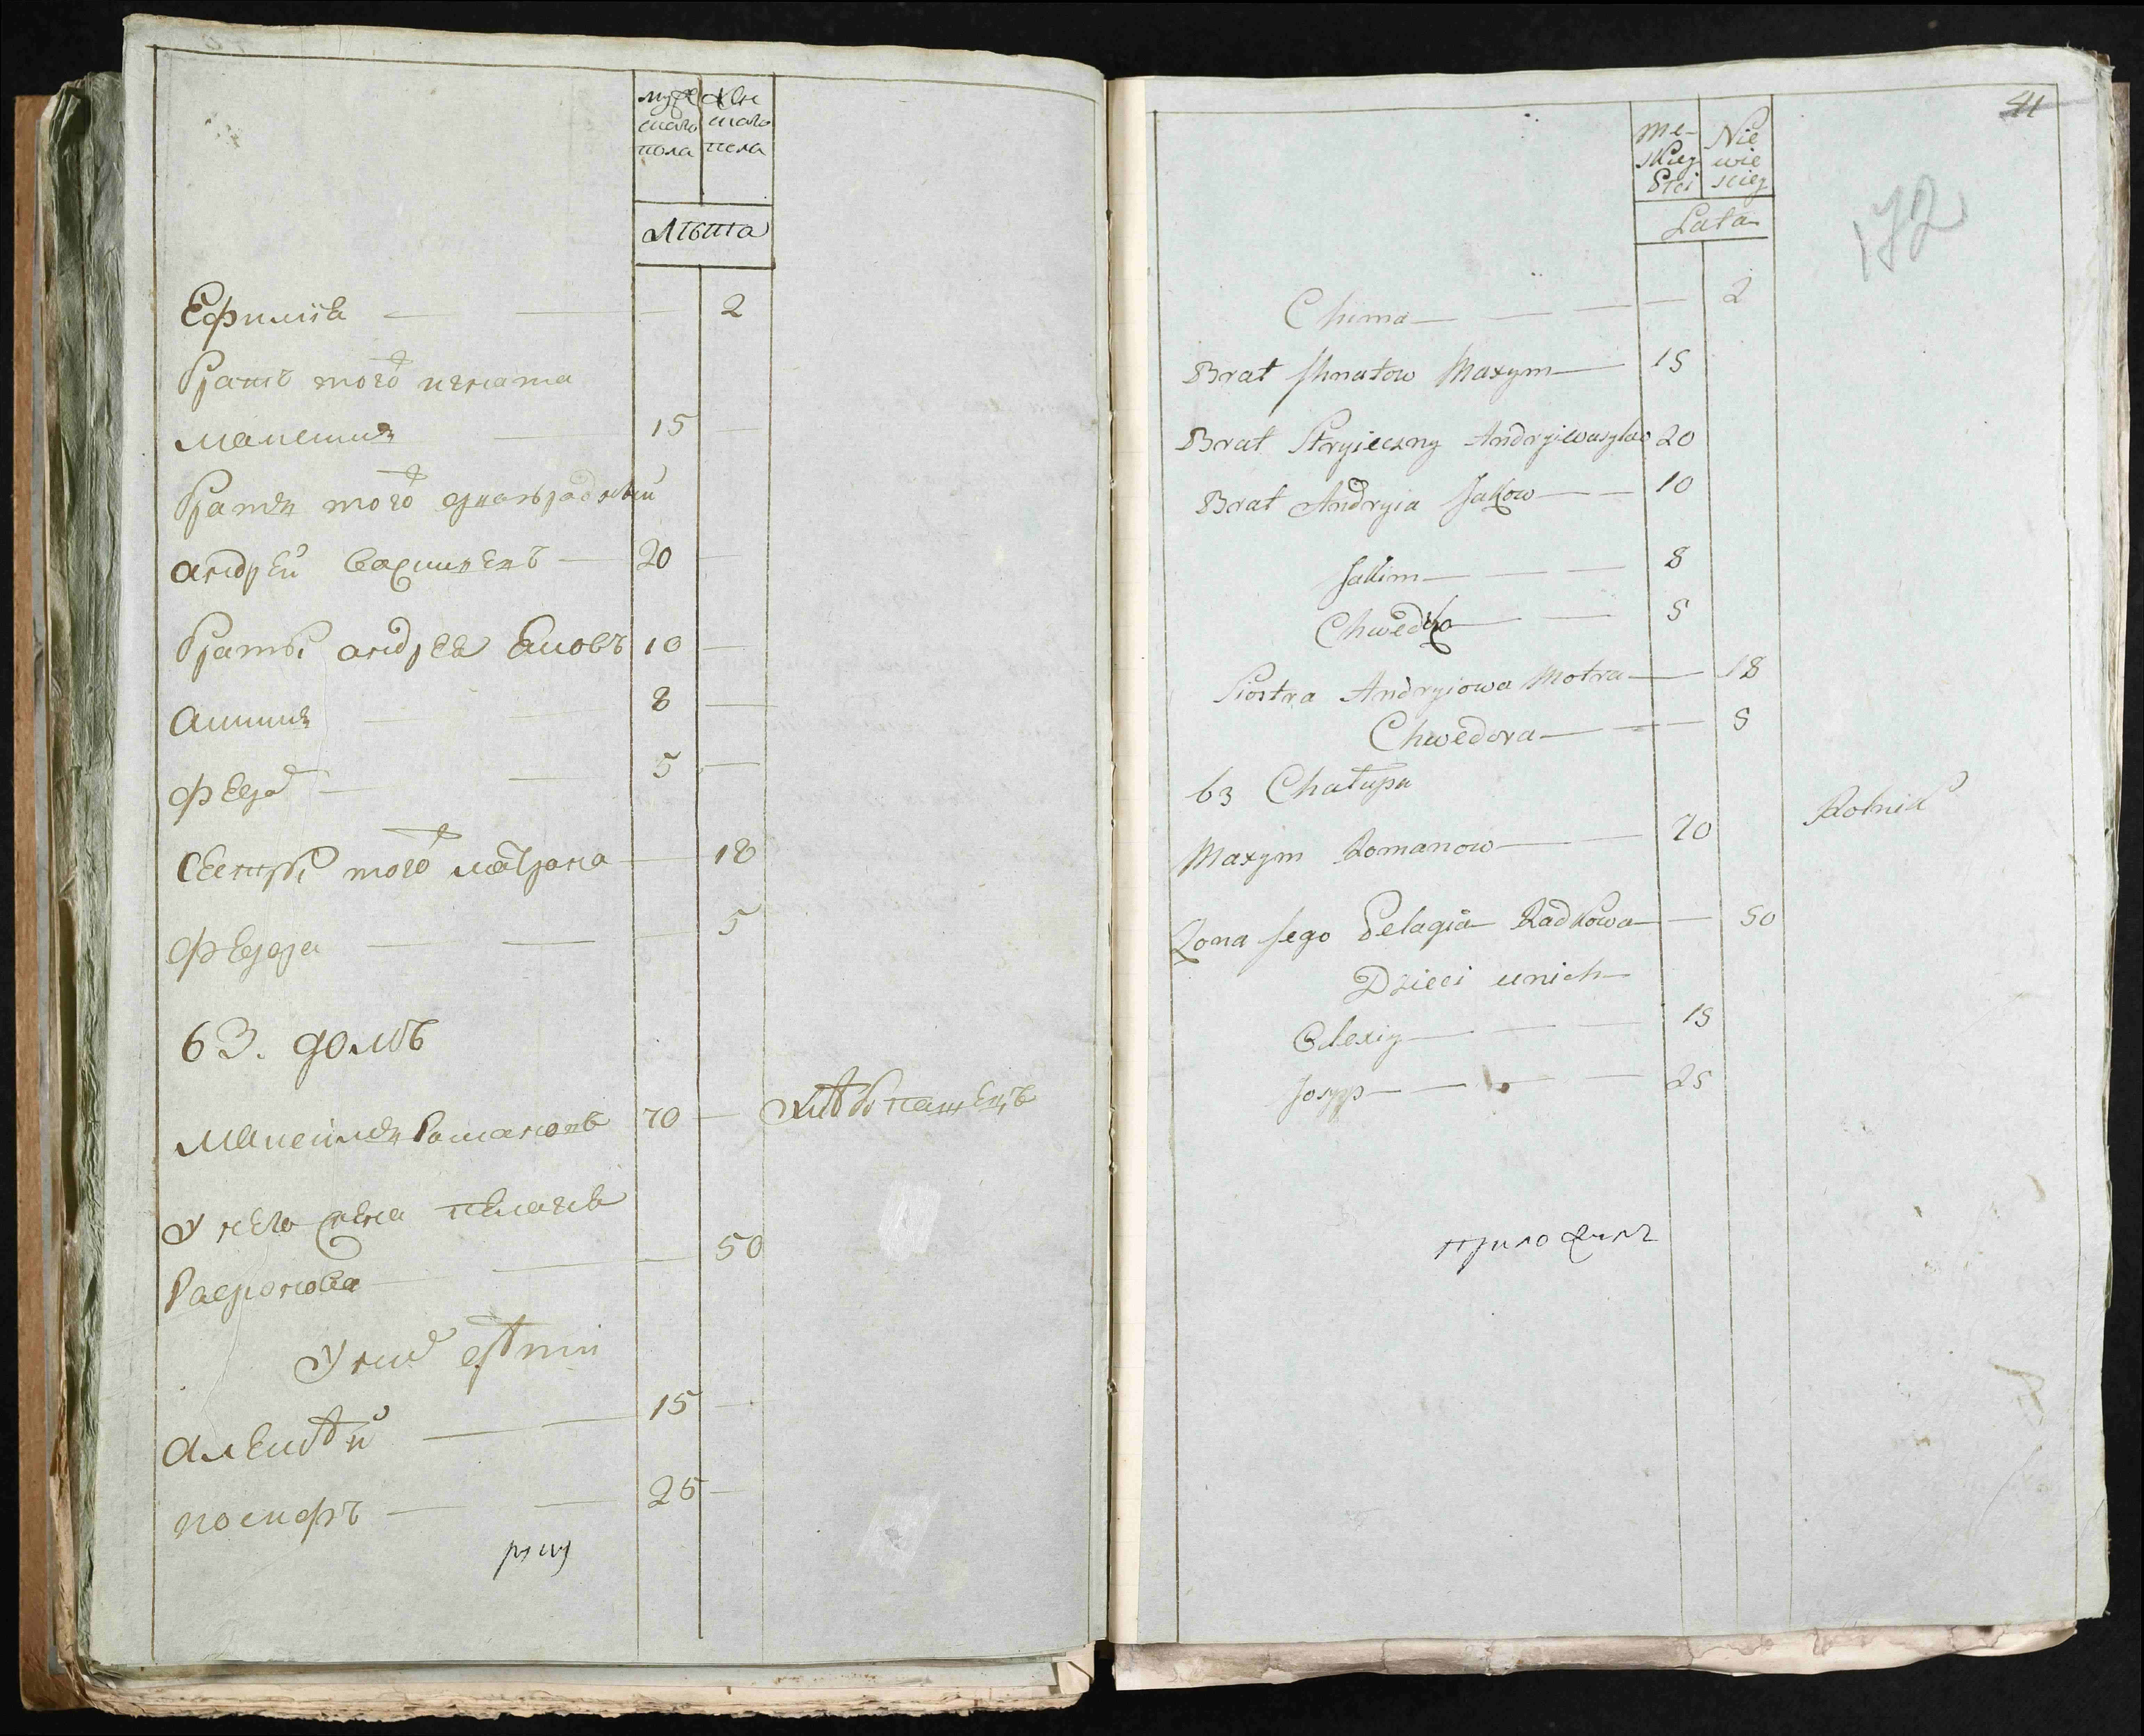 муже жен
скаго скаго
пола пола
лѣта
Ефимія — 2
братъ того игната
максимъ 15 —
братъ того
андрей василевъ — 20 —
братъ андрея Яковъ 10 —
акимъ 8 —
Федоръ — 5 —
Сестра того матрона — 18
Федора — — 5
63. домъ
максимъ Романовъ 70 — хлѣбопашецъ
У него жена пелагея
— 50
У них дѣти
алексѣй — 15 —
иосифъ — 25 —
41
172
Me- Nie
skiey wie
Płci sciey
Lata
Chima — 2
Brat Ihnatow Maxym — 15
Brat Stryieczny Andryi Wasylow 20
Brat Andryia Jakow — 10
Jakim — 8
Chwedko — 5
Siostra Andryiowa Motra — 18
Chwedora — 5
63 Chałupa
Maxym Romanow — 70 Rolnik
Żona Jego Pelagia Radkowa — 50
Dzieci u nich
Olexiy — 15
Josyp — 25
приложилъ